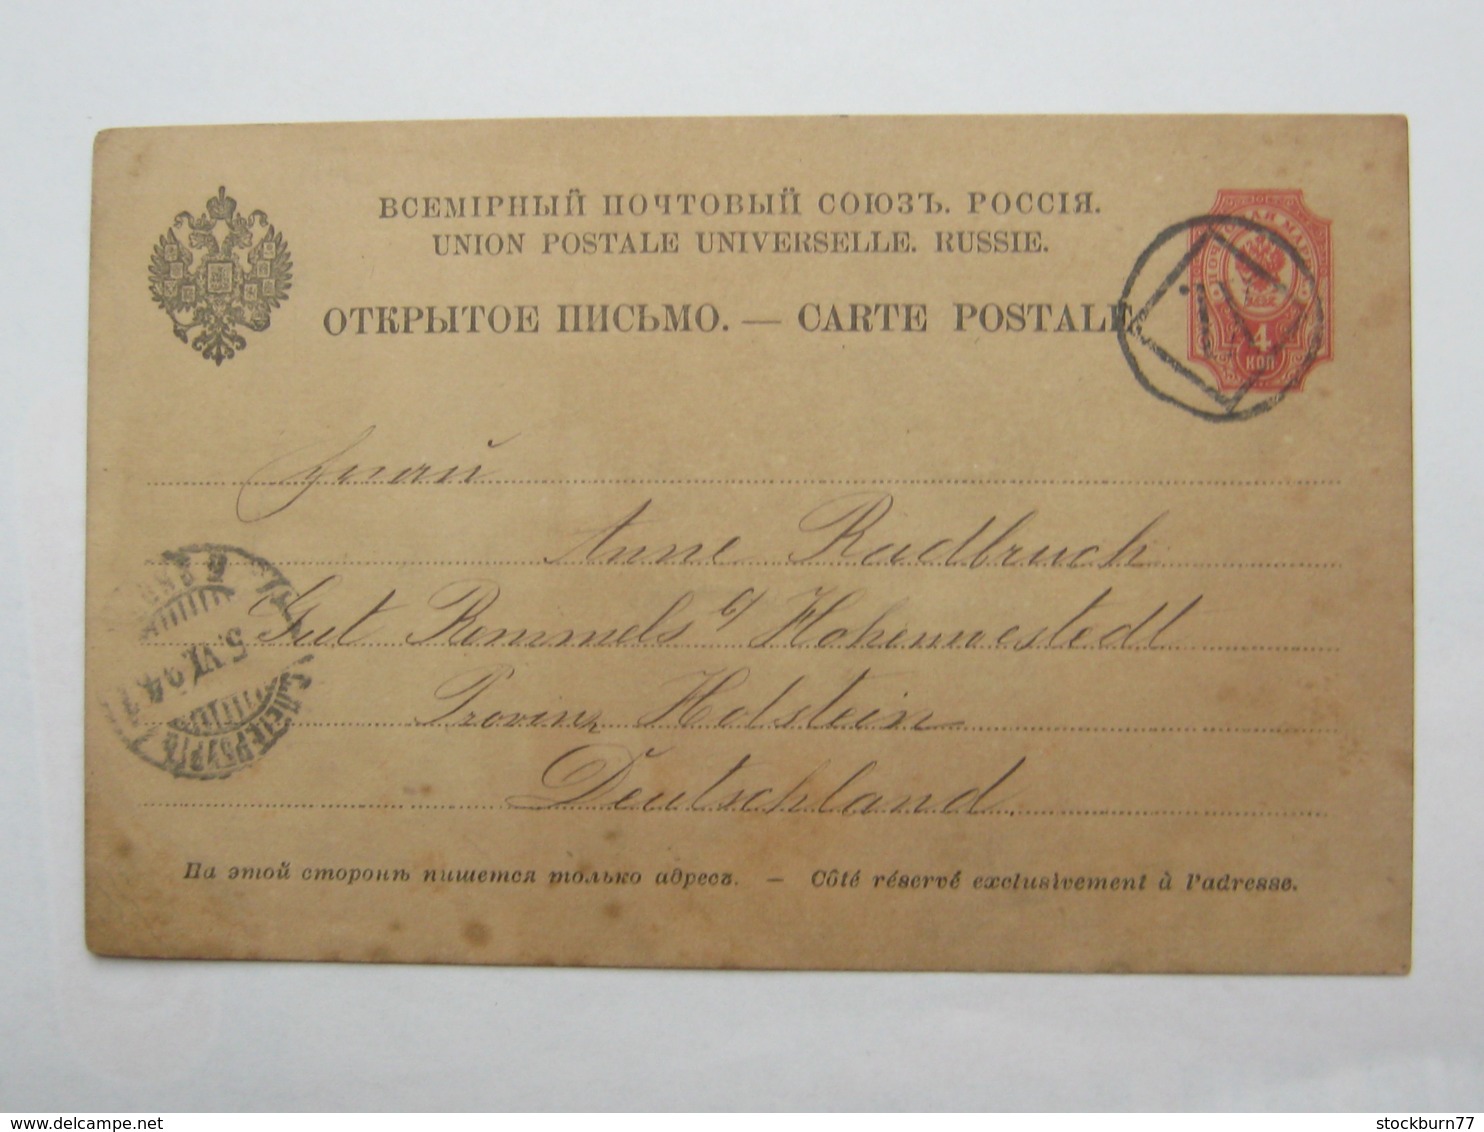 ВСЕМІРНЫЙ ПОЧТОВЫЙ СОЮЗЪ. РОССІЯ.
UNION POSTALE UNIVERSELLE. RUSSIE.
ОТКРЫТОЕ ПИСЬМО. — CARTE POSTALE.
4
КОП
Anne Radbruch
Gut Remmels b/ Hohenwestedt
Provinz Holstein
Deutschland.
5 VI 94
С.ПЕТЕРБУРГЪ
На этой сторонѣ пишется только адресъ. — Côté réservé exclusivement à l'adresse.
delcampe.net
stockburn77